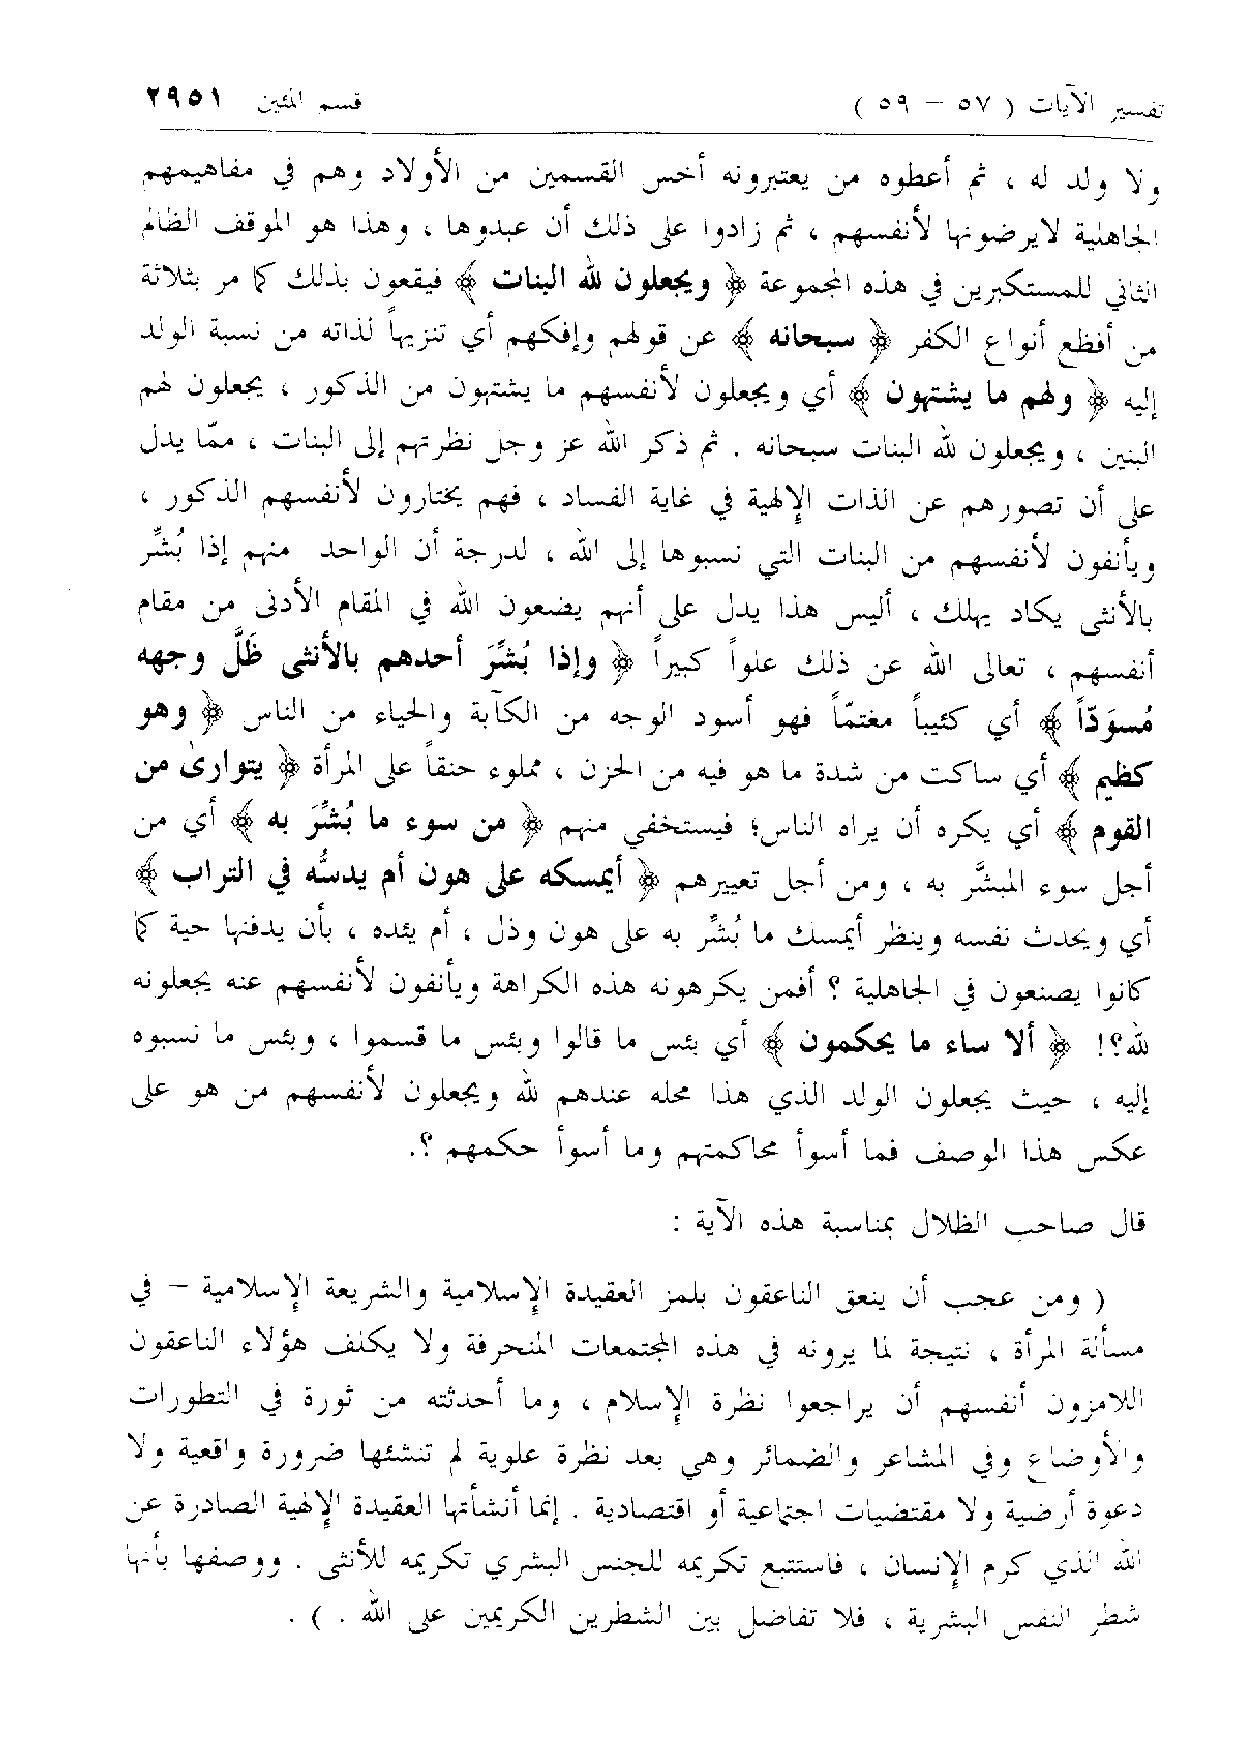 تفسير الآيات ( ٥٧ – ٥٩ ) قسم المئين ٢٩٥١
ولا ولد له ، ثم أعطوه من يعتبرونه أخس القسمين من الأولاد وهم في مفاهيمهم
الجاهلية لايرضونها لأنفسهم ، ثم زادوا على ذلك أن عبدوها ، وهذا هو الموقف الظالم
الثاني للمستكبرين في هذه المجموعة ﴿ ويجعلون لله البنات ﴾ فيقعون بذلك كما مر بثلاثة
من أفظع أنواع الكفر ﴿ سبحانه ﴾ عن قولهم وإفكهم أي تنزيهاً لذاته من نسبة الولد
إليه ﴿ ولهم ما يشتهون ﴾ أي ويجعلون لأنفسهم ما يشتهون من الذكور ، يجعلون لهم
البنين ، ويجعلون لله البنات سبحانه . ثم ذكر الله عز وجل نظرتهم إلى البنات ، ممّا يدل
على أن تصورهم عن الذات الإلهية في غاية الفساد ، فهم يختارون لأنفسهم الذكور ،
ويأنفون لأنفسهم من البنات التي نسبوها إلى الله ، لدرجة أن الواحد منهم إذا بُشِّر
بالأنثى يكاد يهلك ، أليس هذا يدل على أنهم يضعون الله في المقام الأدنى من مقام
أنفسهم ، تعالى الله عن ذلك علواً كبيراً ﴿ وإذا بُشِّرَ أحدهم بالأنثى ظَلَّ وجهه
مُسوَدّاً ﴾ أي كئيباً مغتمّاً فهو أسود الوجه من الكآبة والحياء من الناس ﴿ وهو
كظيم ﴾ أي ساكت من شدة ما هو فيه من الحزن ، مملوء حنقاً على المرأة ﴿ يتوارىٰ من
القوم ﴾ أي يكره أن يراه الناس؛ فيستخفي منهم ﴿ من سوء ما بُشِّرَ به ﴾ أي من
أجل سوء المبشَّر به ، ومن أجل تعييرهم ﴿ أيمسكه على هون أم يدسُّه في التراب ﴾
أي ويحدث نفسه وينظر أيمسك ما بُشِّر به على هون وذل ، أم يئده ، بأن يدفنها حية كما
كانوا يصنعون في الجاهلية ؟ أفمن يكرهونه هذه الكراهة ويأنفون لأنفسهم عنه يجعلونه
لله؟! ﴿ ألا ساء ما يحكمون ﴾ أي بئس ما قالوا وبئس ما قسموا ، وبئس ما نسبوه
إليه ، حيث يجعلون الولد الذي هذا محله عندهم لله ويجعلون لأنفسهم من هو على
عكس هذا الوصف فما أسوأ محاكمتهم وما أسوأ حكمهم ؟.
قال صاحب الظلال بمناسبة هذه الآية :
( ومن عجب أن ينعق الناعقون بلمز العقيدة الإسلامية والشريعة الإسلامية – في
مسألة المرأة ، نتيجة لما يرونه في هذه المجتمعات المنحرفة ولا يكلف هؤلاء الناعقون
اللامزون أنفسهم أن يراجعوا نظرة الإسلام ، وما أحدثته من ثورة في التطورات
والأوضاع وفي المشاعر والضمائر وهي بعد نظرة علوية لم تنشئها ضرورة واقعية ولا
دعوة أرضية ولا مقتضيات اجتماعية أو اقتصادية . إنما أنشأتها العقيدة الإلهية الصادرة عن
الله الذي كرم الإنسان ، فاستتبع تكريمه للجنس البشري تكريمه للأنثى . ووصفها بأنها
شطر النفس البشرية ، فلا تفاضل بين الشطرين الكريمين على الله . ) .